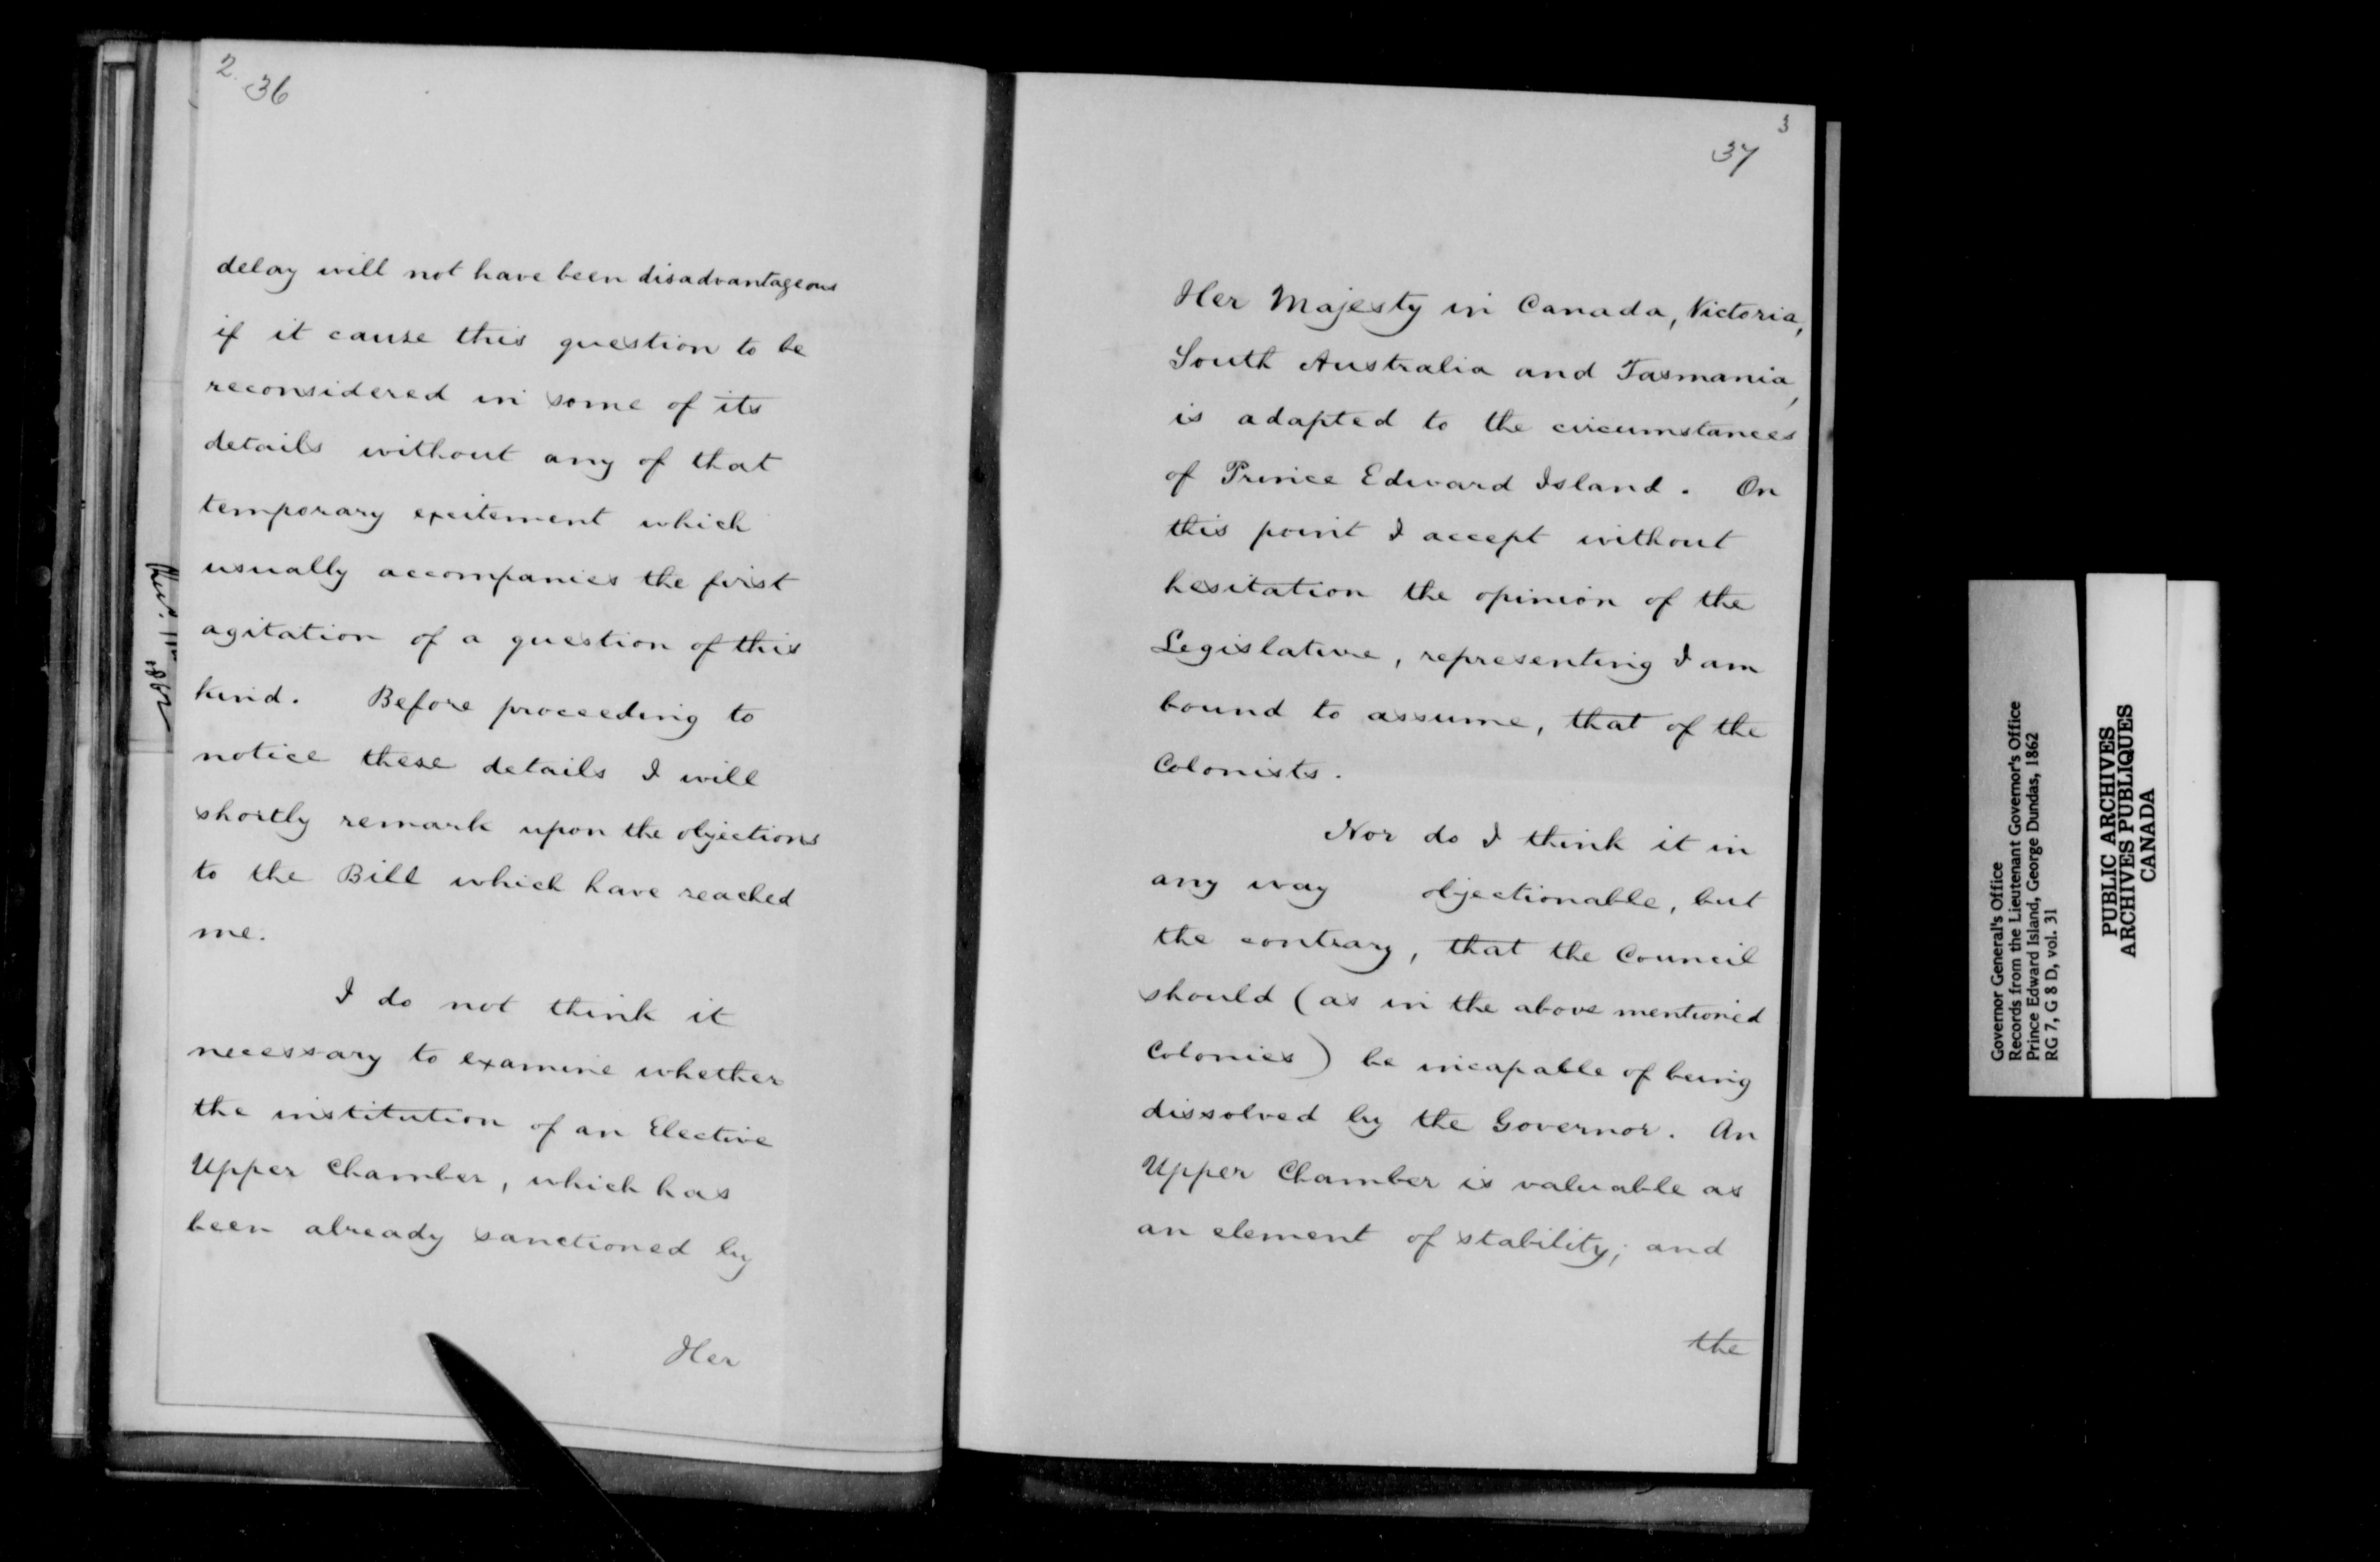 2.
36
delay will not have been disadvantageous
if it cause this question to be
reconsidered in some of its
details without any of that
temporary excitement which
usually accompanies the first
agitation of a question of this
kind. Before proceeding to
notice these details I will
shortly remark upon the objections
to the Bill which have reached
me.
I do not think it
necessary to examine whether
the institution of an Elective
Upper Chamber, which has
been already sanctioned by
Her
3
37
Her Majesty in Canada, Victoria,
South Australia and Tasmania,
is adapted to the circumstances
of Prince Edward Island. On
this point I accept without
hesitation the opinion of the
Legislature, representing I am
bound to assume, that of the
Colonists.
Nor do I think it in
any way objectionable, but
the contrary, that the Council
should (as in the above mentioned
Colonies) be incapable of being
dissolved by the Governor. An
Upper Chamber is valuable as
an element of stability; and
the
Governor General's Office
Records from the Lieutenant Governor's Office
Prince Edward Island, George Dundas, 1862
RG 7, G 8 D, vol. 31
PUBLIC ARCHIVES
ARCHIVES PUBLIQUES
CANADA